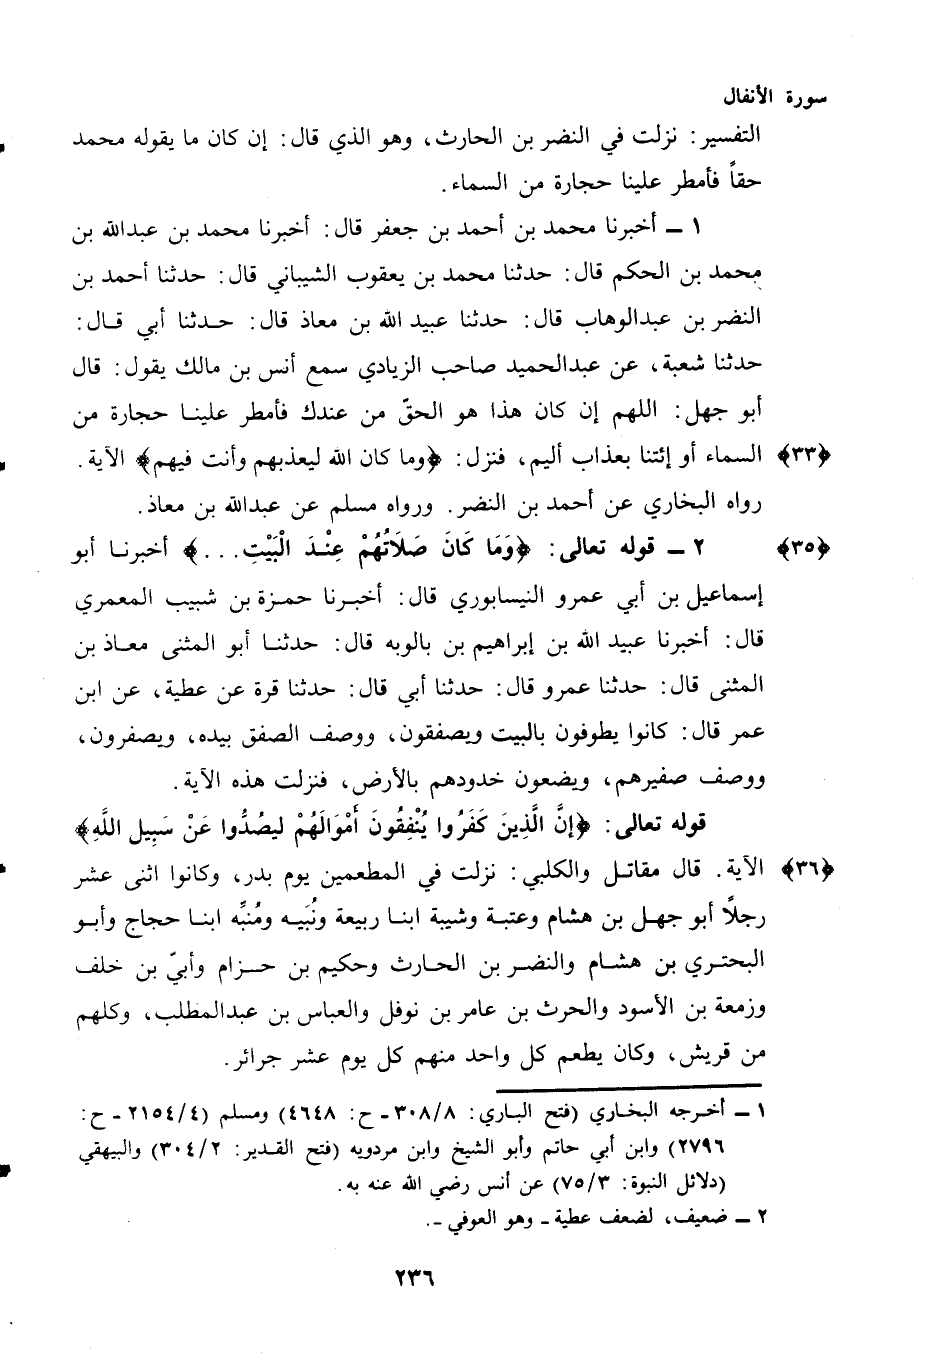 سورة الأنفال
التفسير: نزلت في النضر بن الحارث، وهو الذي قال: إن كان ما يقوله محمد
حقاً فأمطر علينا حجارة من السماء.
١ ــ أخبرنا محمد بن أحمد بن جعفر قال: أخبرنا محمد بن عبدالله بن
محمد بن الحكم قال: حدثنا محمد بن يعقوب الشيباني قال: حدثنا أحمد بن
النضر بن عبدالوهاب قال: حدثنا عبيد الله بن معاذ قال: حـدثنا أبي قـال:
حدثنا شعبة، عن عبدالحميد صاحب الزيادي سمع أنس بن مالك يقول: قال
أبو جهل: اللهم إن كان هذا هو الحقّ من عندك فأمطر علينـا حجارة من
﴿٣٣﴾ السماء أو إئتنا بعذاب أليم، فنزل: ﴿وما كان الله ليعذبهم وأنت فيهم﴾ الآية.
رواه البخاري عن أحمد بن النضر. ورواه مسلم عن عبدالله بن معاذ.
﴿٣٥﴾ ٢ ــ قوله تعالى: ﴿وَمَا كَانَ صَلَاتُهُمْ عِنْدَ الْبَيْتِ...﴾ أخبرنـا أبو
إسماعيل بن أبي عمرو النيسابوري قال: أخبـرنا حمـزة بن شبيب المعمري
قال: أخبرنا عبيد الله بن إبراهيم بن بالويه قال: حدثنـا أبو المثنى معـاذ بن
المثنى قال: حدثنا عمرو قال: حدثنا أبي قال: حدثنا قرة عن عطية، عن ابن
عمر قال: كانوا يطوفون بالبيت ويصفقون، ووصف الصفق بيده، ويصفرون،
ووصف صفيرهم، ويضعون خدودهم بالأرض، فنزلت هذه الآية.
قوله تعالى: ﴿إِنَّ الَّذِينَ كَفَرُوا يُنْفِقُونَ أَمْوَالَهُمْ لِيَصُدُّوا عَنْ سَبِيلِ اللَّهِ﴾
﴿٣٦﴾ الآية. قال مقاتـل والكلبي: نزلت في المطعمين يوم بدر، وكانوا اثنى عشر
رجلاً أبو جهـل بن هشام وعتبـة وشيبة ابنـا ربيعة ونُبَيـه ومُنبِّه ابنـا حجاج وأبـو
البحتـري بن هشـام والنضـر بن الحـارث وحكيم بن حـزام وأبيّ بن خلف
وزمعة بن الأسود والحرث بن عامر بن نوفل والعباس بن عبدالمطلب، وكلهم
من قريش، وكان يطعم كل واحد منهم كل يوم عشر جرائر.
١ ــ أخـرجه البخـاري (فتح البـاري: ٣٠٨/٨ ـ ح: ٤٦٤٨) ومسلم (٢١٥٤/٤ ـ ح:
٢٧٩٦) وابن أبي حاتم وأبو الشيخ وابن مردويه (فتح القـدير: ٣٠٤/٢) والبيهقي
(دلائل النبوة: ٧٥/٣) عن أنس رضي الله عنه به.
٢ ــ ضعيف، لضعف عطية ـ وهو العوفي ـ.
٢٣٦